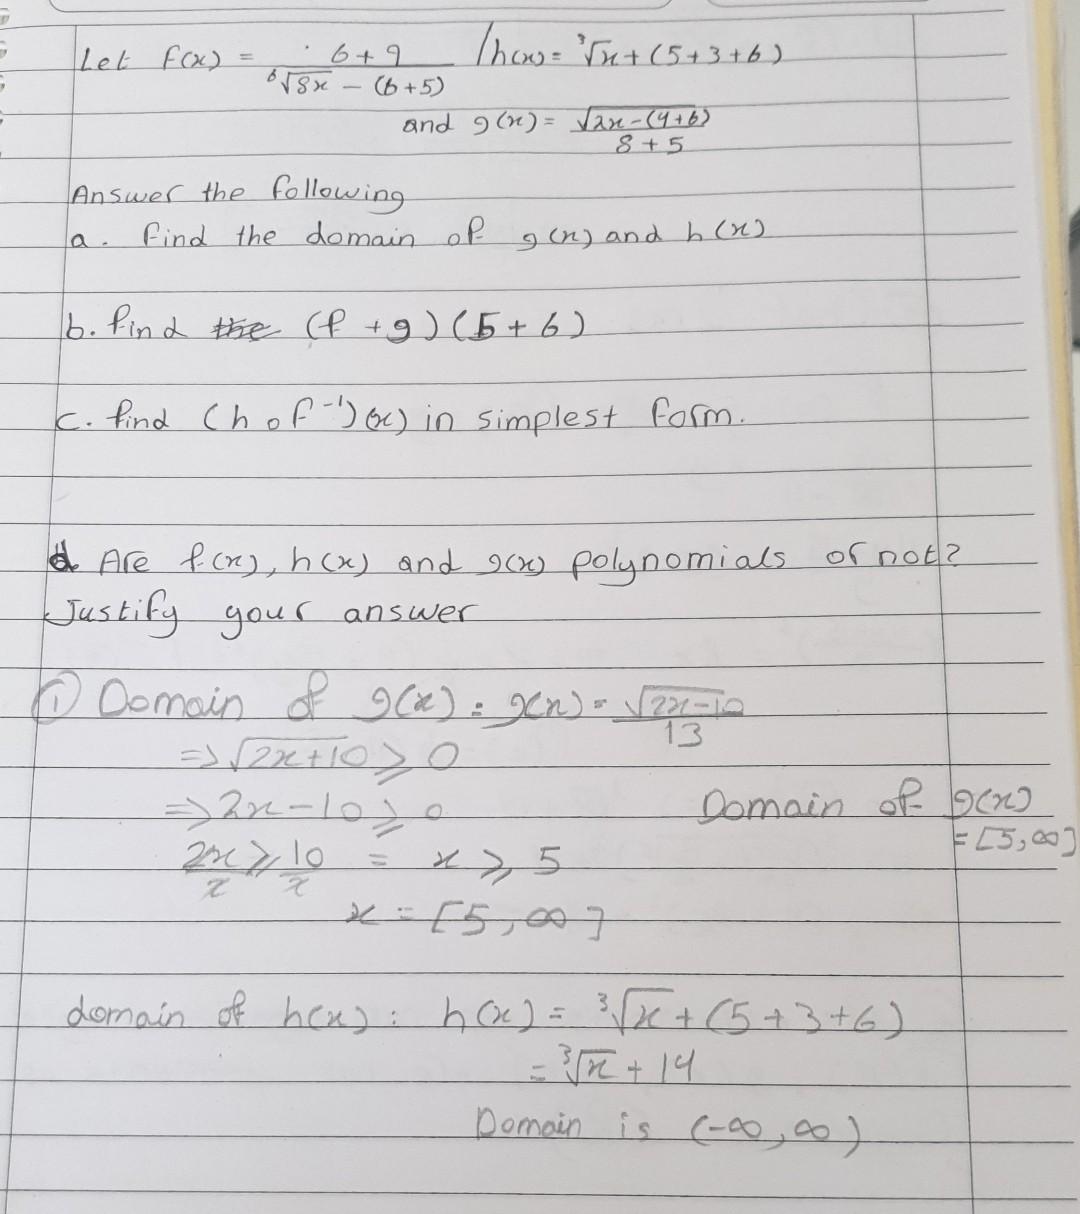 Let f(x) = 6+9 / ⁶√8x - (6+5) / h(x) = ³√x + (5+3+6)
and g(x) = √2x-(4+6) / 8+5
Answer the following
a. Find the domain of g(x) and h(x)
b. find the (f +g)(5+6)
c. find (h o f⁻¹)(x) in simplest form.
d. Are f(x), h(x) and g(x) polynomials or not?
Justify your answer
① Domain of g(x) : g(x) = √2x-10 / 13
=> √2x+10 ≥ 0
=> 2x-10 ≥ 0
Domain of g(x)
= [5,∞]
2x/2 ≥ 10/2 = x ≥ 5
x = [5, ∞]
domain of h(x) : h(x) = ³√x + (5+3+6)
= ³√x + 14
Domain is (-∞,∞)